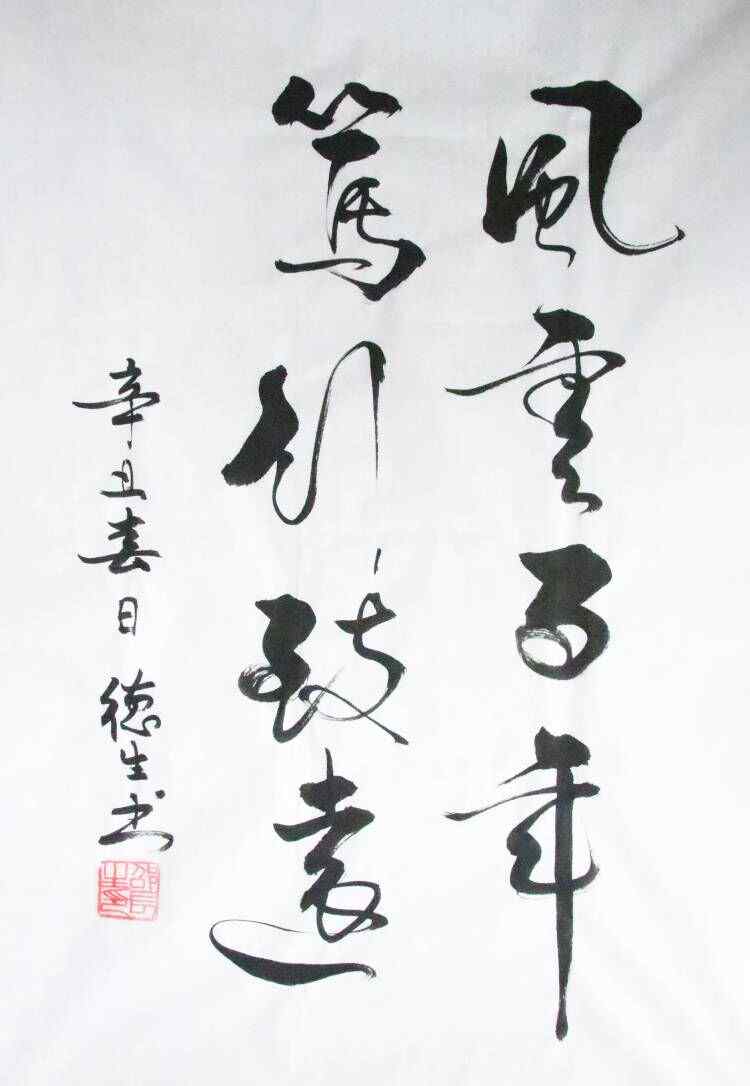 風雲百年
篤行致遠
辛丑春日德生书